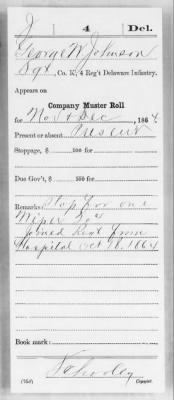 J | 4 | Del.
George W Johnson
Sgt, Co. K, 4 Reg't Delaware Infantry.
Appears on
Company Muster Roll
for Nov & Dec, 1864.
Present or absent Present
Stoppage, $ 100 for
Due Gov't, $ 100 for
Remarks: Stop for one
Wiper 20c
Joined Regt from
Hospital Oct 18, 1864
Book mark:
(358) Copyist.